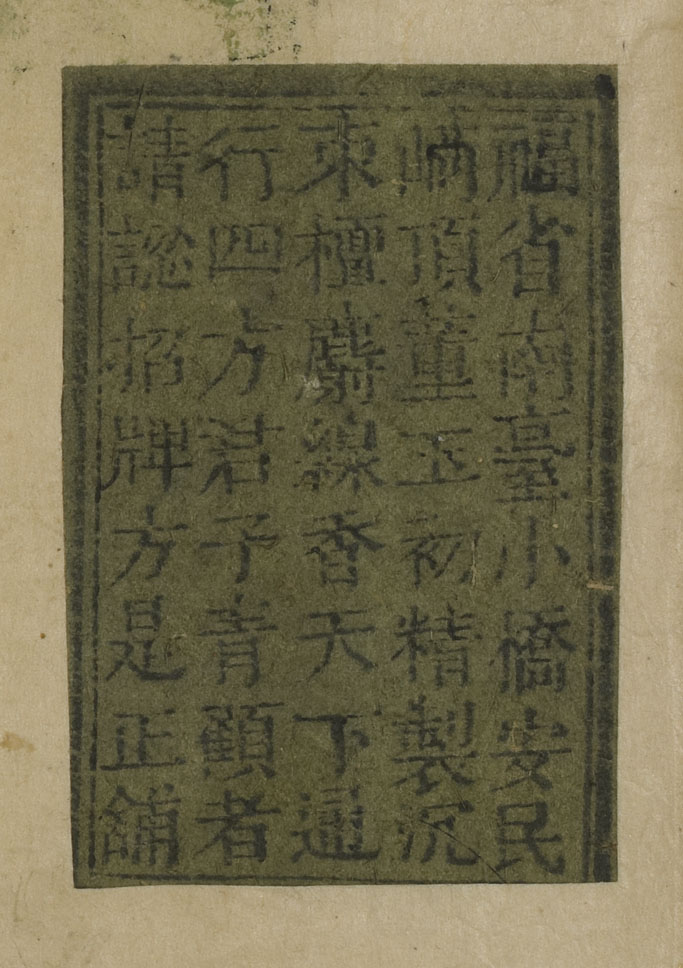 福省南臺小橋安民
峬頂董玉初精製沉
束檀麝線香天下通
行四方君子青顧者
請認招牌方是正舖